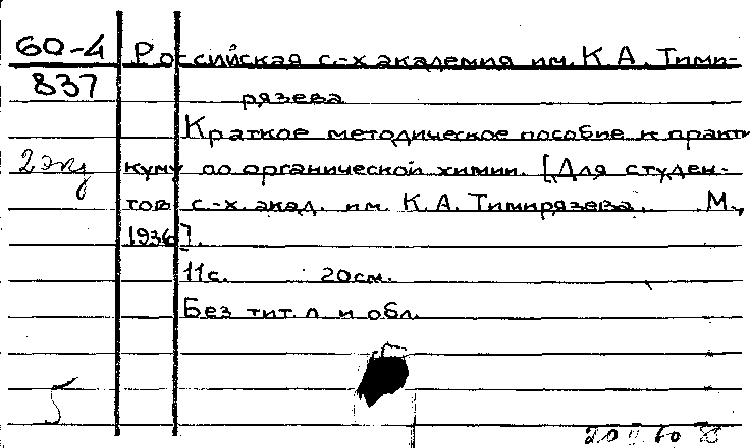 60-4 Российская с.-х академия им. К.А. Тими-
837
рязева
Краткое методическое пособие к практи
2 экз куму по органической химии. [Для студен-
тов с.-х. акад. им. К.А. Тимирязева. М.,
1936].
11с. 20см.
Без тит. л и обл.
5